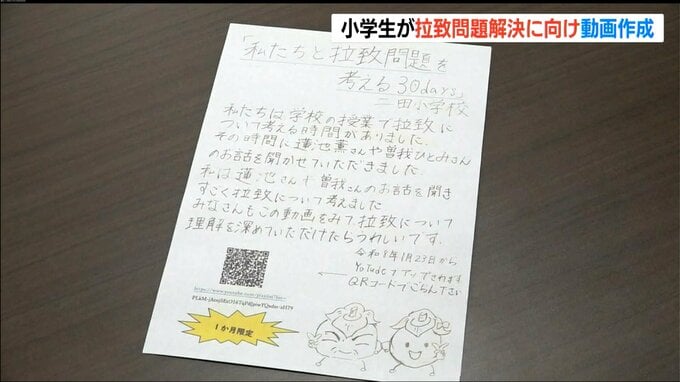 小学生が拉致問題解決に向け動画作成
「私たちと拉致問題を
考える30days」
二田小学校
私たちは学校の授業で拉致に
ついて考える時間がありました。
その時間に蓮池薫さんや曽我ひとみさん
のお話を聞かせていただきました。
私は蓮池さんや曽我さんのお話を聞き
すごく拉致について考えました
みなさんもこの動画をみて拉致について
理解を深めていただけたらうれしいです。
令和8年1月23日から
YouTubeで
QRコードでごらん下さい
1か月限定